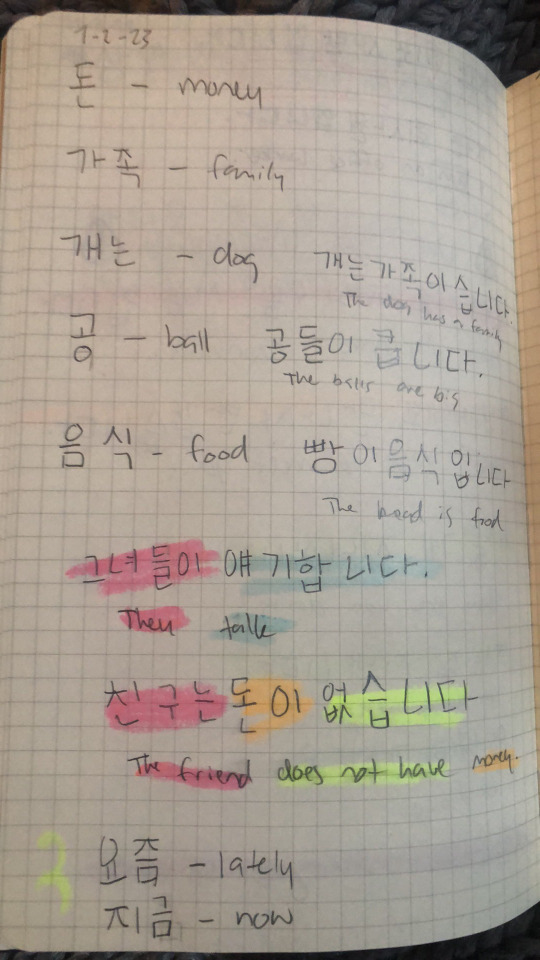 1-2-23
돈 - money
가족 - family
개는 - dog 개는가족이습니다.
The dog has a family
공 - ball 공들이 큽니다.
The balls are big
음식 - food 빵이음식입니다
The bread is food
그녀들이 얘기합니다.
They talk
친구는돈이 없습니다
The friend does not have money.
요즘 - lately
지금 - now